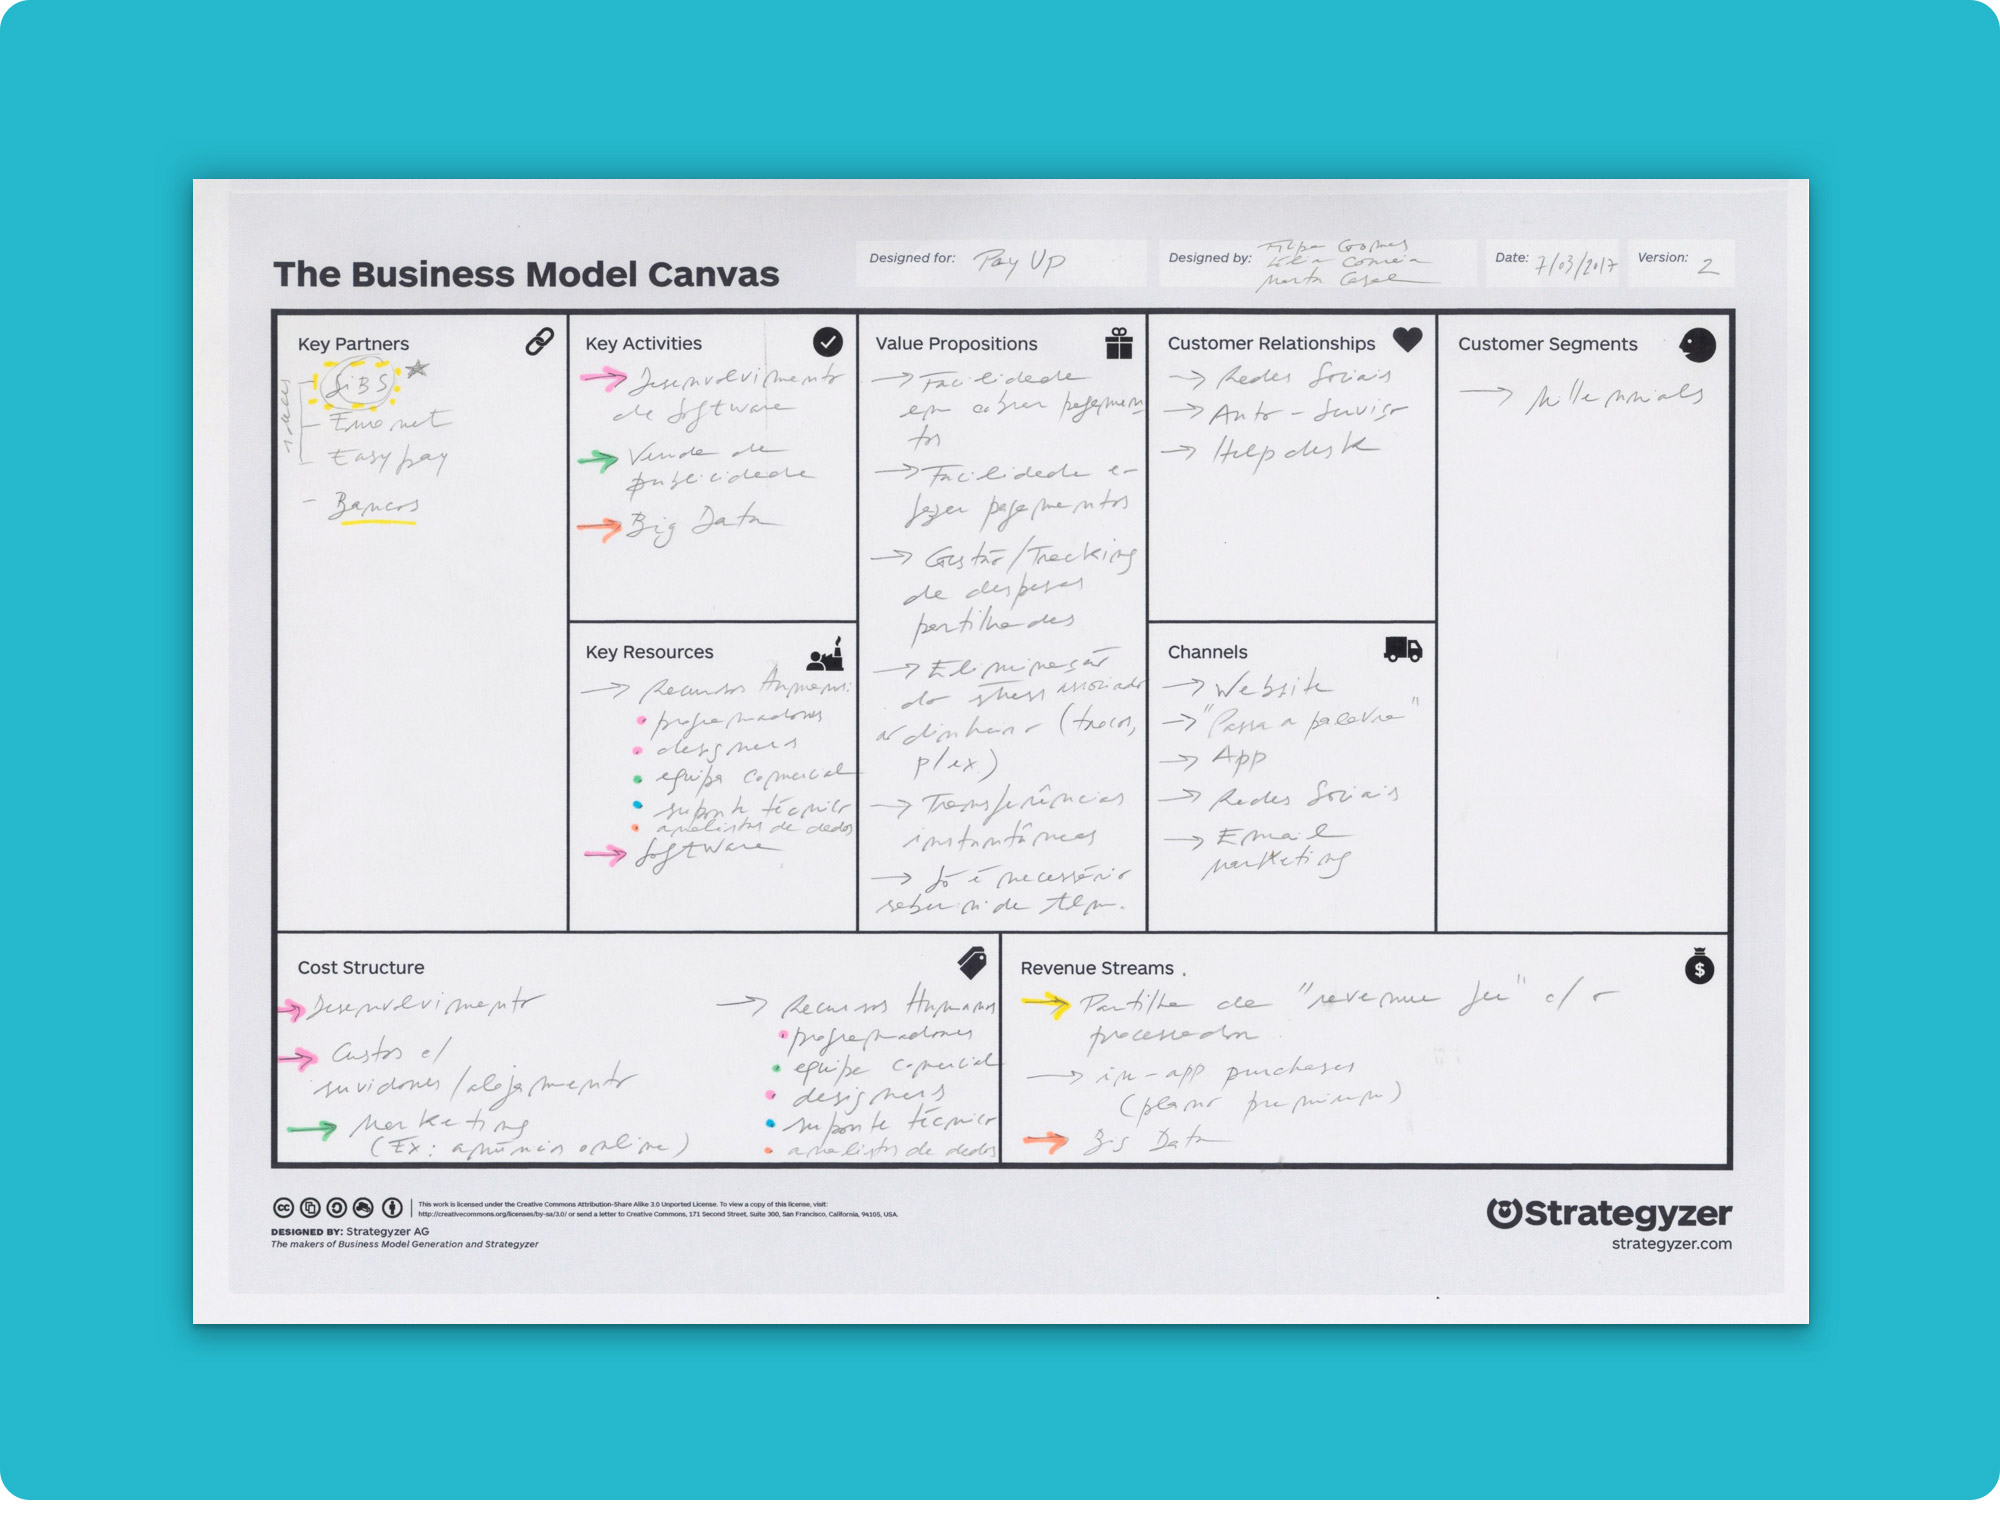 The Business Model Canvas
Designed for: Pay Up
Designed by: Filipa Gomes
Lélia Correia
Marta Casal
Date: 7/03/2017
Version: 2
Key Partners
SIBS
Euronet
Easypay
- Bancos
Key Activities
→ Desenvolvimento
de Software
→ Venda de
publicidade
→ Big Data
Key Resources
→ Recursos Humanos:
• programadores
• designers
• equipa comercial
• suporte técnico
• analistas de dados
→ Software
Value Propositions
→ Facilidade
em cobrar pagamen
tos
→ Facilidade em
fazer pagamentos
→ Gestão/Tracking
de despesas
partilhadas
→ Eliminação
do stress associado
ao dinheiro (trocos,
p/ex)
→ Transferências
instantâneas
→ Só é necessário
saber nr de tlm.
Customer Relationships
→ Redes Sociais
→ Auto-Serviço
→ Helpdesk
Channels
→ Website
→ "Passa a palavra"
→ App
→ Redes Sociais
→ Email
marketing
Customer Segments
→ Millennials
Cost Structure
→ Desenvolvimento
→ Custos c/
servidores/alojamento
→ Marketing
(Ex: anúncios online)
→ Recursos Humanos
• programadores
• equipa comercial
• designers
• suporte técnico
• analistas de dados
Revenue Streams
→ Partilha de "revenue fee" c/ o
processador
→ in-app purchases
(plano premium)
→ Big Data
This work is licensed under the Creative Commons Attribution-Share Alike 3.0 Unported License. To view a copy of this license, visit:
http://creativecommons.org/licenses/by-sa/3.0/ or send a letter to Creative Commons, 171 Second Street, Suite 300, San Francisco, California, 94105, USA.
DESIGNED BY: Strategyzer AG
The makers of Business Model Generation and Strategyzer
Strategyzer
strategyzer.com